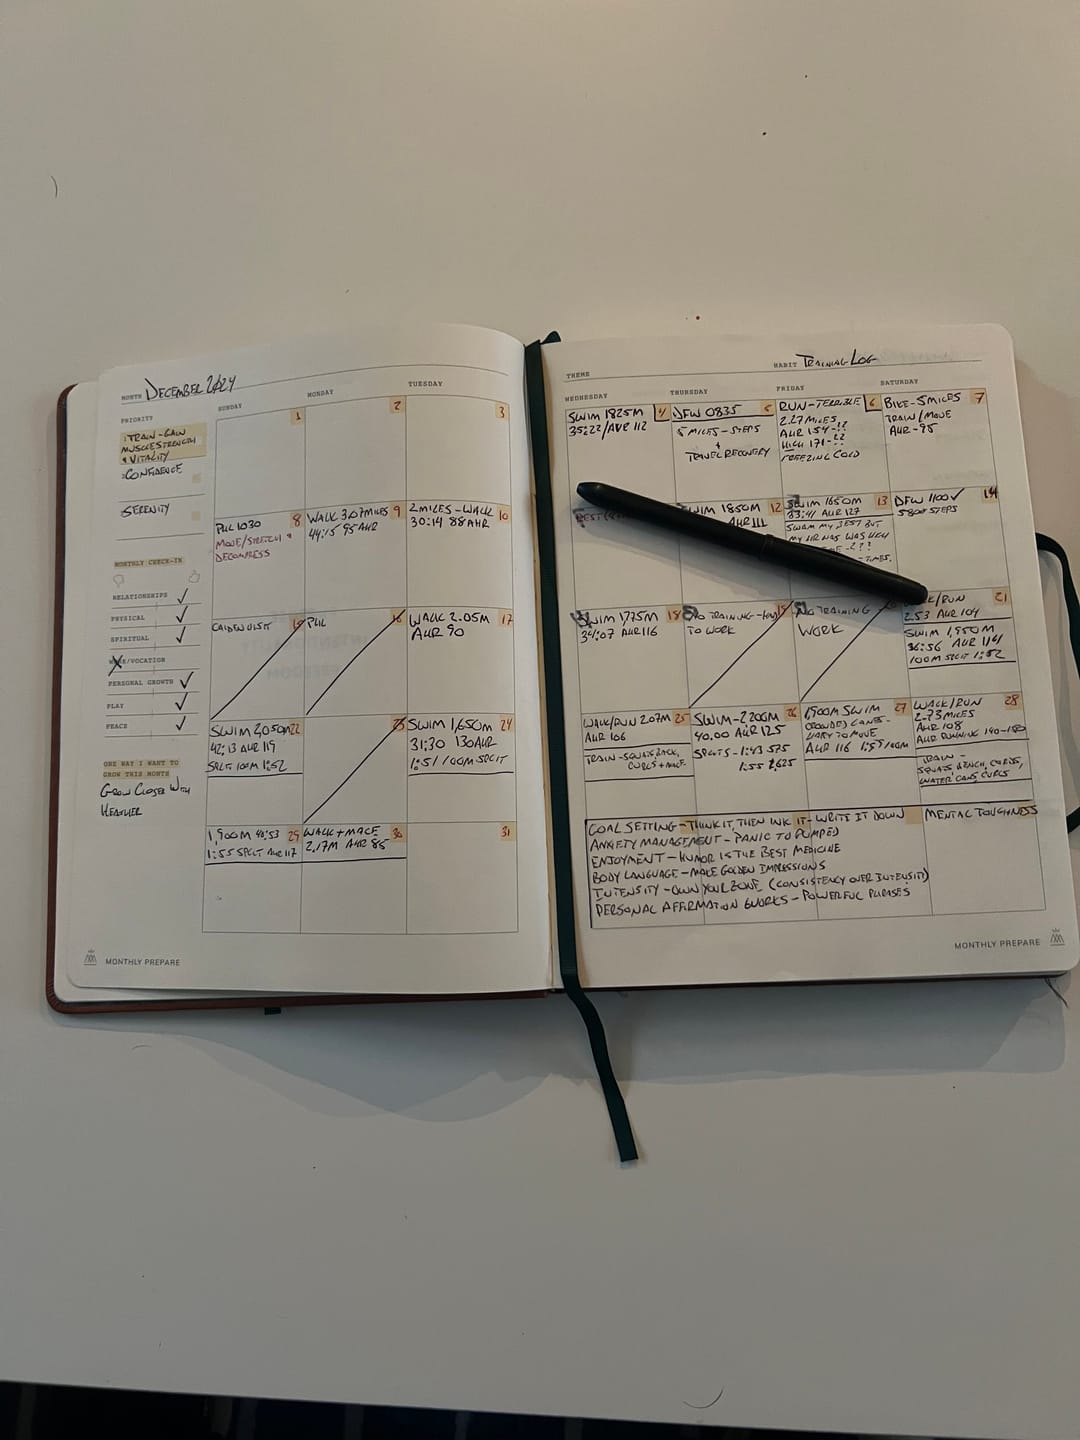 MONTH DECEMBER 2024
PRIORITY
TRAIN - GAIN
MUSCLE STRENGTH
& VITALITY
CONFIDENCE
SERENITY
MONTHLY CHECK-IN
RELATIONSHIPS ✓
PHYSICAL ✓
SPIRITUAL ✓
/VOCATION
PERSONAL GROWTH ✓
PLAY ✓
PEACE ✓
ONE WAY I WANT TO
GROW THIS MONTH
GROW CLOSER WITH
HEATHER
SUNDAY
MONDAY
TUESDAY
1
2
3
8
PHL 1030
MOVE/STRETCH &
DECOMPRESS
9
WALK 3.07 MILES
44:15 95 AHR
10
2 MILES - WALK
30:14 88 AHR
15
CAIDEN VISIT
16
PHL
17
WALK 2.05M
AHR 90
22
SWIM 2,050M
42:13 AHR 119
SPLIT 100M 1:52
23
24
SWIM 1,650M
31:30 130 AHR
1:51/100M SPLIT
29
1,900M 40:53
1:55 SPLIT AHR 117
30
WALK + MACE
2.17M AHR 85
31
MONTHLY PREPARE
THEME
HABIT TRAINING LOG
WEDNESDAY
THURSDAY
FRIDAY
SATURDAY
4
SWIM 1825M
35:22/AHR 112
5
DFW 0835
5 MILES - STEPS
+
TRAVEL RECOVERY
6
RUN - TERRIBLE
2.27 MILES
AHR 154 -??
HIGH 171 -??
FREEZING COLD
7
BIKE - 5 MILES
TRAIN/MOVE
AHR - 95
REST
12
SWIM 1850M
AHR 111
13
SWIM 1650M
33:41 AHR 127
SWAM MY BEST BUT
MY HR WAS HIGH
-???
- TIMES.
14
DFW 1100 ✓
5800 STEPS
18
SWIM 1,775M
34:07 AHR 116
19
NO TRAINING -
TO WORK
NO TRAINING
WORK
21
/RUN
2.53 AHR 104
SWIM 1,950M
36:56 AHR 114
100M SPLIT 1:52
25
WALK/RUN 2.07M
AHR 106
TRAIN - SQUATS, BACK,
CURLS + MACE
26
SWIM - 2200M
40.00 AHR 125
SPLITS - 1:43 575
1:55 1,625
27
1,900M SWIM
CROWDED LANES -
HARD TO MOVE
AHR 116 1:57/100M
28
WALK/RUN
2.73 MILES
AHR 108
AHR RUNNING 140-150
TRAIN -
SQUATS, BENCH, CORDS,
WATER CANS, CURLS
GOAL SETTING - THINK IT, THEN INK IT - WRITE IT DOWN
MENTAL TOUGHNESS
ANXIETY MANAGEMENT - PANIC TO PUMPED
ENJOYMENT - HUMOR IS THE BEST MEDICINE
BODY LANGUAGE - MAKE GOLDEN IMPRESSIONS
INTENSITY - OWN YOUR ZONE (CONSISTENCY OVER INTENSITY)
PERSONAL AFFIRMATION WORKS - POWERFUL PHRASES
MONTHLY PREPARE